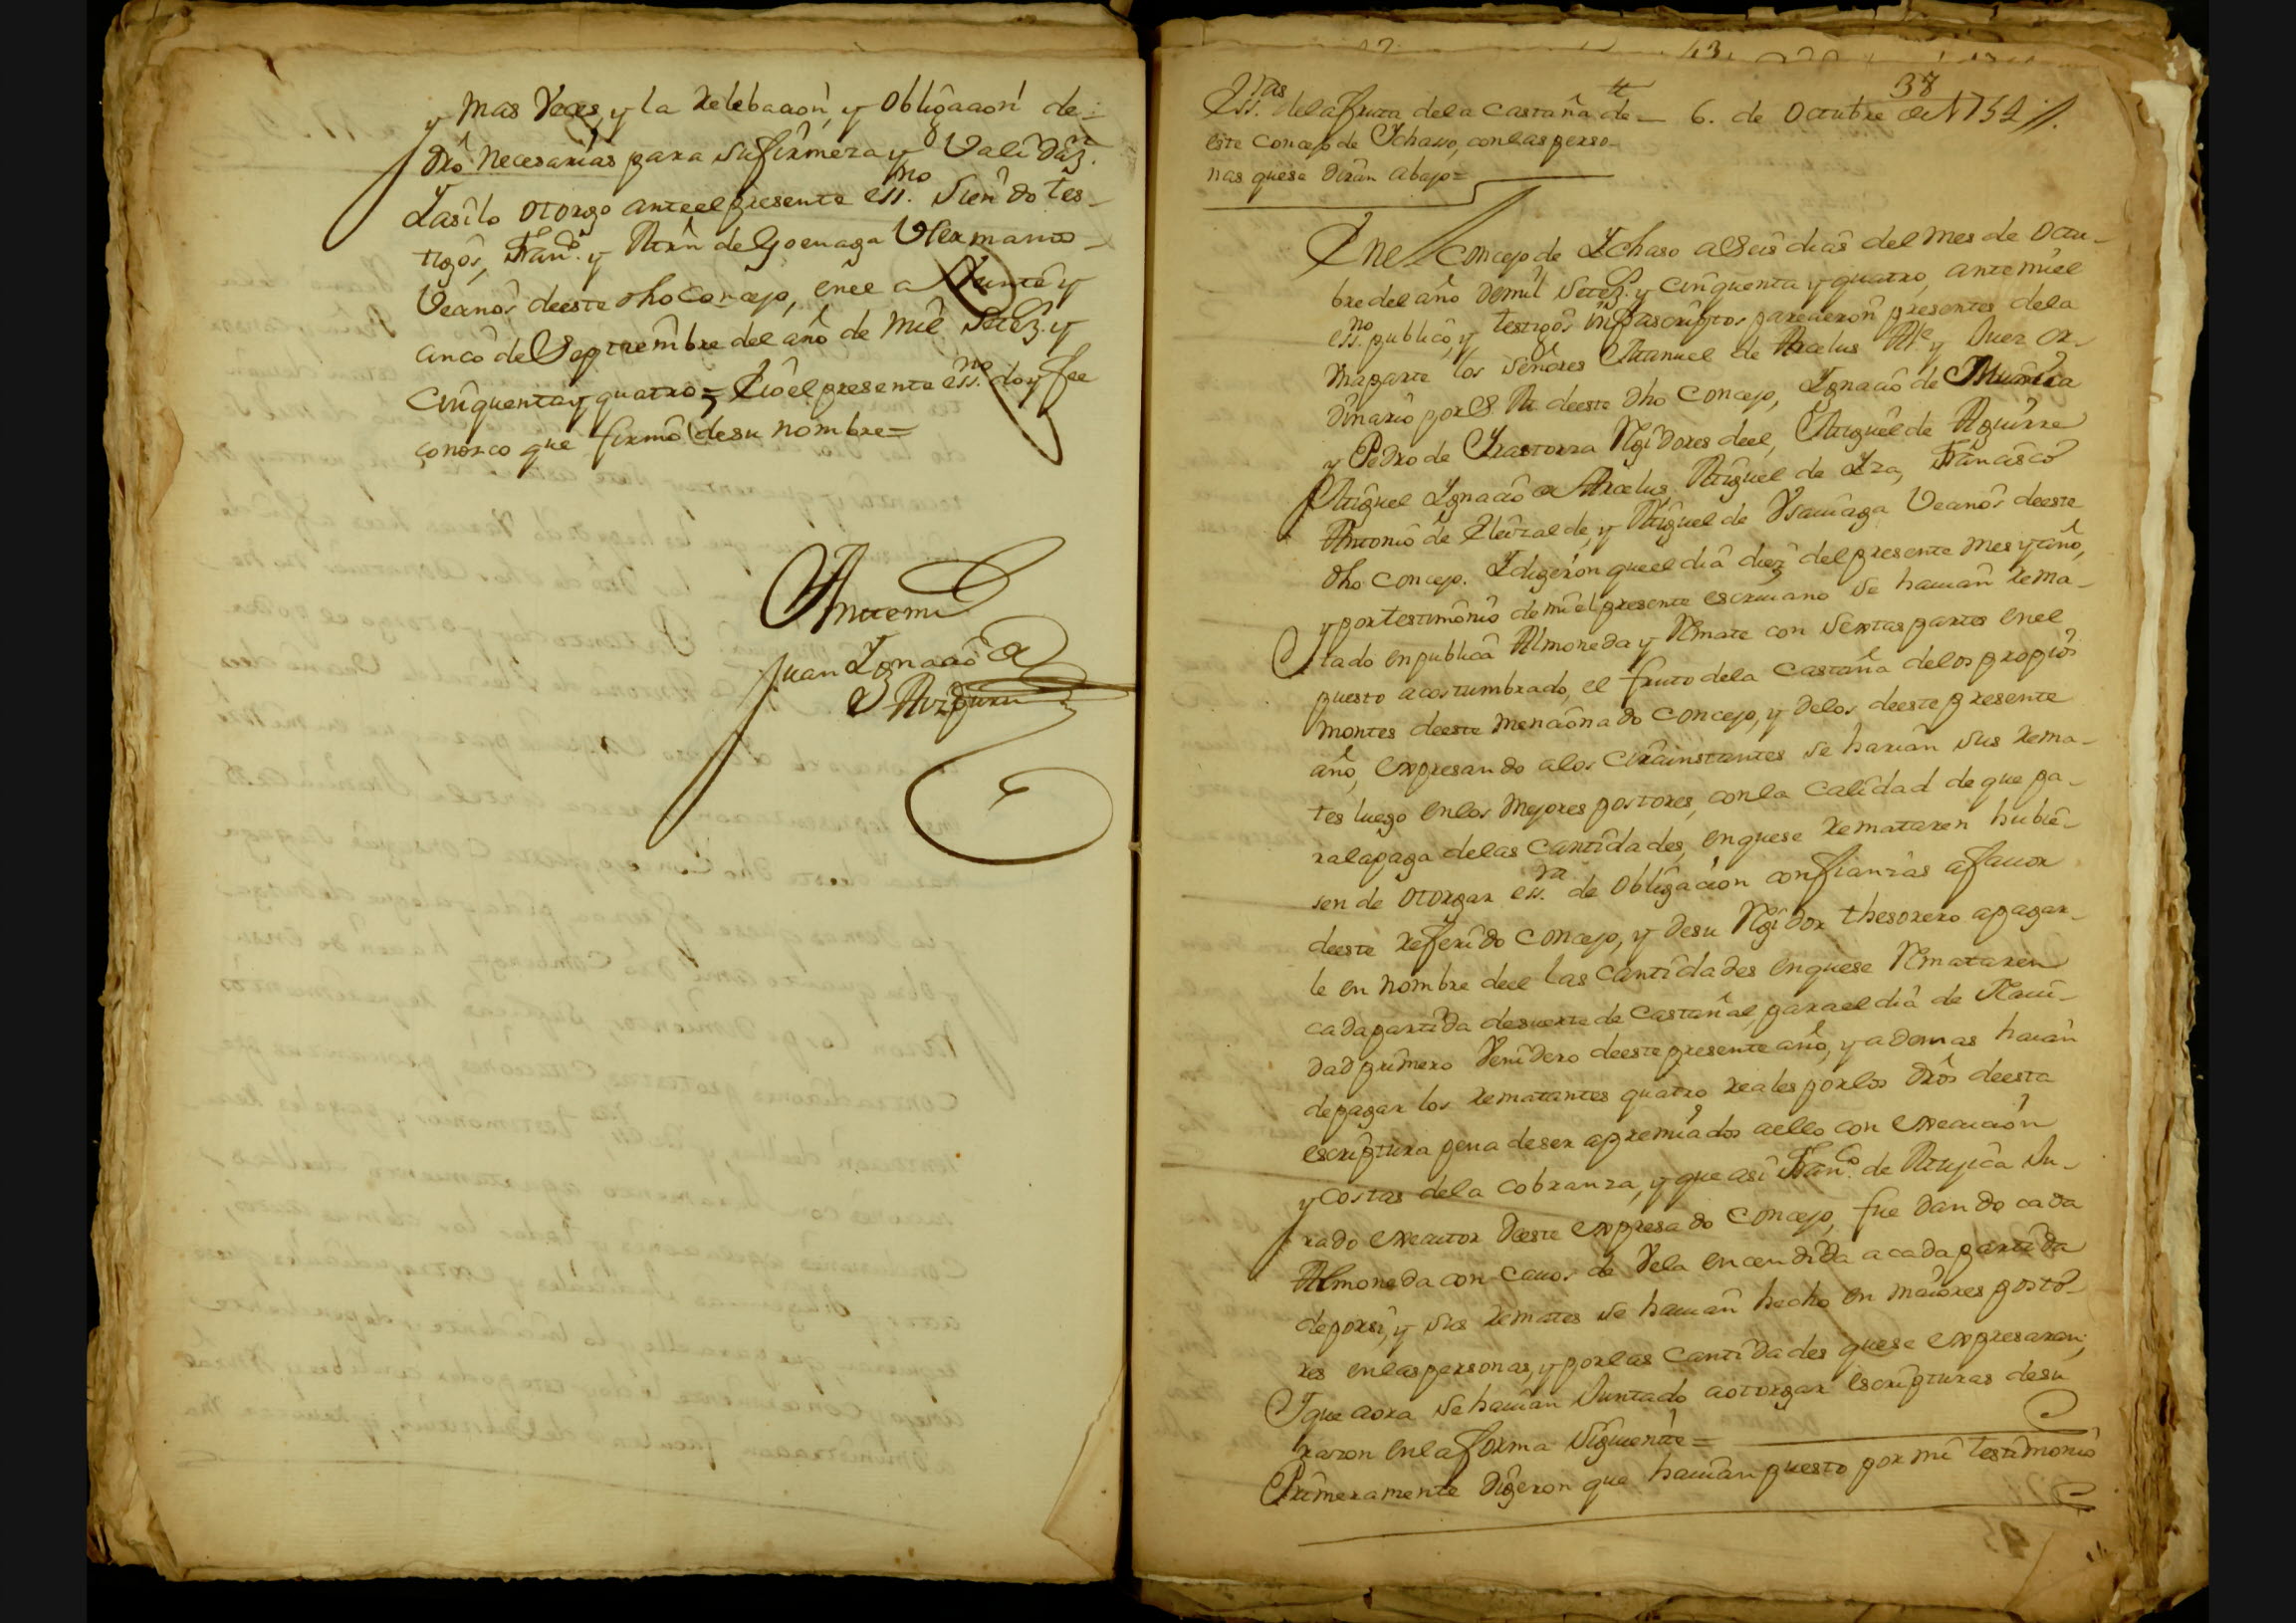 y mas Veces, y la relebacion, y obligacion de
dro necesarias para su firmeza y Validaz.
Y asi lo otorgo ante el presente essno. siendo tes-
tigos, Franco. y Mrn de Goenaga Hermanos
Vecinos de este dho Concejo, en el a Veinte y
cinco de Septiembre del año de mil setez. y
Cinquenta y quatro = E io el presente essno. doy fee
conozco que firmó de su nombre =
Ante mi
Juan Ignacio de
Aizpuru
38
Essras. de la fruta de la Castaña de — 6. de Octubre de 1754
este Concejo de Ichaso, con las perso-
nas que se diran abajo =
En el Concejo de Ichaso a Seis dias del mes de Octu-
bre del año de mil setez. y Cinquenta y quatro, ante mi el
essno. publico, y testigos infrascriptos parecieron presentes de la
una parte los señores Manuel de Arcelus Alle. y Juez or-
dinario por S. M. de este dho Concejo, Ignacio de Mugica
y Pedro de Irastorza Regidores de el, Miguel de Aguirre
Miguel Ignacio de Arcelus, Miguel de Iza, Francisco
Antonio de Eleizalde, y Miguel de Usauiaga Vecinos de este
dho Concejo. Y digeron que el dia diez del presente mes y año,
y por testimonio de mi el presente escriuano se hauian rema-
tado en publica Almoneda y Remate con ciertas partes en el
puesto acostumbrado, el fruto de la Castaña de los propios
montes de este mencionado Concejo, y de los de este presente
año, expresando a los circuinstantes se harian sus rema-
tes luego en los mejores postores, con la calidad de que pa-
ra la paga de las Cantidades, en que se remataren hubie-
sen de otorgar essra. de obligacion con fianzas a fauor
de este referido Concejo, y de su Regidor thesorero a pagar-
le en nombre de el las Cantidades en que se Remataren
cada partida de suerte de Castañal, para el dia de Naui-
dad primero Venidero de este presente año, y a demas hauian
de pagar los rematantes quatro reales por los dros de esta
escriptura pena de ser apremiados a ello con execucion
y costas de la cobranza, y que asi Franco. de Mugica Ju-
rado executor de este expresado Concejo, fue dando cada
Almoneda con cauos de Vela encendida a cada partida
de por si, y sus remates se hauian hecho en maiores posto-
res en las personas, y por las Cantidades que se expresaran;
Y que aora se hauian Juntado a otorgar escripturas de su
razon en la forma siguiente =
Primeramente digeron que hauian puesto por mi testimonio